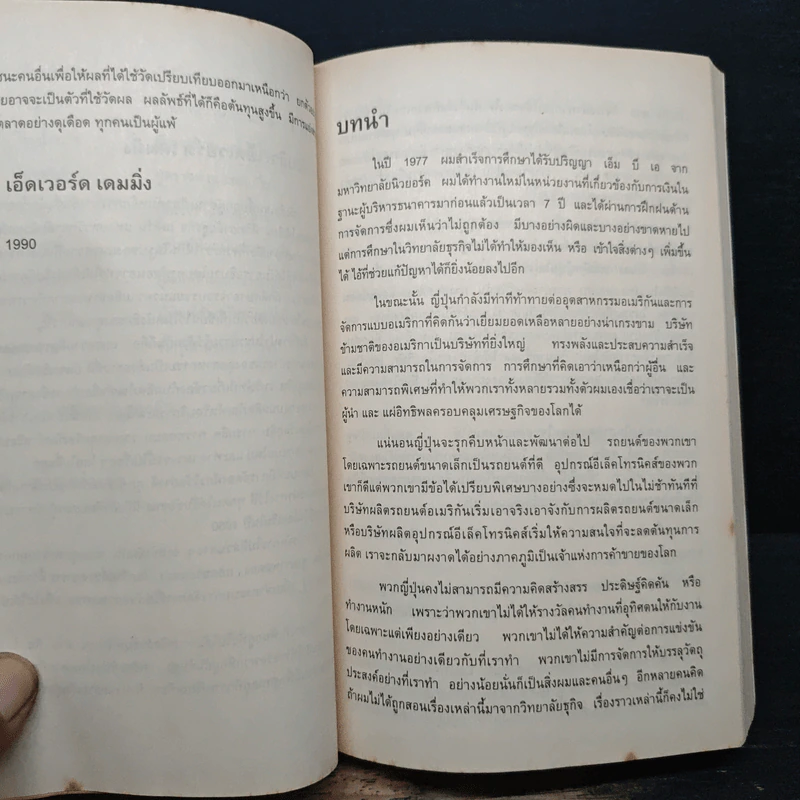 ชนะคนอื่นเพื่อให้ผลที่ได้ใช้วัดเปรียบเทียบออกมาเหนือกว่า
ยอาจจะเป็นตัวที่ใช้วัดผล ผลลัพธ์ที่ได้ก็คือต้นทุนสูงขึ้น
ตลาดอย่างดุเดือด ทุกคนเป็นผู้แพ้
เอ็ดเวอร์ด เดมมิ่ง
1990
บทนำ
ในปี 1977 ผมสำเร็จการศึกษาได้รับปริญญา เอ็ม บี เอ จาก
มหาวิทยาลัยนิวยอร์ค ผมได้ทำงานใหม่ในหน่วยงานที่เกี่ยวข้องกับการเงินใน
ฐานะผู้บริหารธนาคารมาก่อนแล้วเป็นเวลา 7 ปี และได้ผ่านการฝึกฝนด้าน
การจัดการซึ่งผมเห็นว่าไม่ถูกต้อง มีบางอย่างผิดและบางอย่างขาดหายไป
แต่การศึกษาในวิทยาลัยธุรกิจไม่ได้ทำให้มองเห็น หรือ เข้าใจสิ่งต่างๆ เพิ่มขึ้น
ได้ ไอ้ที่ช่วยแก้ปัญหาได้ก็ยิ่งน้อยลงไปอีก
ในขณะนั้น ญี่ปุ่นกำลังมีท่าทีท้าทายต่ออุตสาหกรรมอเมริกันและการ
จัดการแบบอเมริกาที่คิดกันว่าเยี่ยมยอดเหลือหลายอย่างน่าเกรงขาม บริษัท
ข้ามชาติของอเมริกาเป็นบริษัทที่ยิ่งใหญ่ ทรงพลังและประสบความสำเร็จ
และมีความสามารถในการจัดการ การศึกษาที่คิดเอาว่าเหนือกว่าผู้อื่น และ
ความสามารถพิเศษที่ทำให้พวกเราทั้งหลายรวมทั้งตัวผมเองเชื่อว่าเราจะเป็น
ผู้นำ และ แผ่อิทธิพลครอบคลุมเศรษฐกิจของโลกได้
แน่นอนญี่ปุ่นจะรุกคืบหน้าและพัฒนาต่อไป รถยนต์ของพวกเขา
โดยเฉพาะรถยนต์ขนาดเล็กเป็นรถยนต์ที่ดี อุปกรณ์อีเล็คโทรนิคส์ของพวก
เขาก็ดีแต่พวกเขามีข้อได้เปรียบพิเศษบางอย่างซึ่งจะหมดไปในไม่ช้าทันทีที่
บริษัทผลิตรถยนต์อเมริกันเริ่มเอาจริงเอาจังกับการผลิตรถยนต์ขนาดเล็ก
หรือบริษัทผลิตอุปกรณ์อีเล็คโทรนิคส์เริ่มให้ความสนใจที่จะลดต้นทุนการ
ผลิต เราจะกลับมาผงาดได้อย่างภาคภูมิเป็นเจ้าแห่งการค้าขายของโลก
พวกญี่ปุ่นคงไม่สามารถมีความคิดสร้างสรร ประดิษฐ์คิดค้น หรือ
ทำงานหนัก เพราะว่าพวกเขาไม่ได้ให้รางวัลคนทำงานที่อุทิศตนให้กับงาน
โดยเฉพาะแต่เพียงอย่างเดียว พวกเขาไม่ได้ให้ความสำคัญต่อการแข่งขัน
ของคนทำงานอย่างเดียวกับที่เราทำ พวกเขาไม่มีการจัดการให้บรรลุวัตถุ
ประสงค์อย่างที่เราทำ อย่างน้อยนั่นก็เป็นสิ่งผมและคนอื่นๆ อีกหลายคนคิด
ถ้าผมไม่ได้ถูกสอนเรื่องเหล่านี้มาจากวิทยาลัยธุรกิจ เรื่องราวเหล่านี้ก็คงไม่ใช่